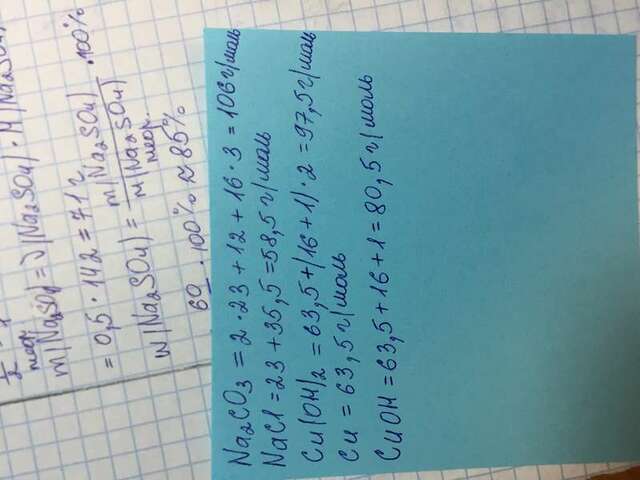 теор.
m(Na₂SO₄) = ν(Na₂SO₄) · M(Na₂SO₄)
= 0,5 · 142 = 71 г
W(Na₂SO₄) = m(Na₂SO₄) / m(Na₂SO₄) теор. · 100%
60 · 100% ≈ 85%
Na₂CO₃ = 2 · 23 + 12 + 16 · 3 = 106 г/моль
NaCl = 23 + 35,5 = 58,5 г/моль
Cu(OH)₂ = 63,5 + (16 + 1) · 2 = 97,5 г/моль
Cu = 63,5 г/моль
CuOH = 63,5 + 16 + 1 = 80,5 г/моль